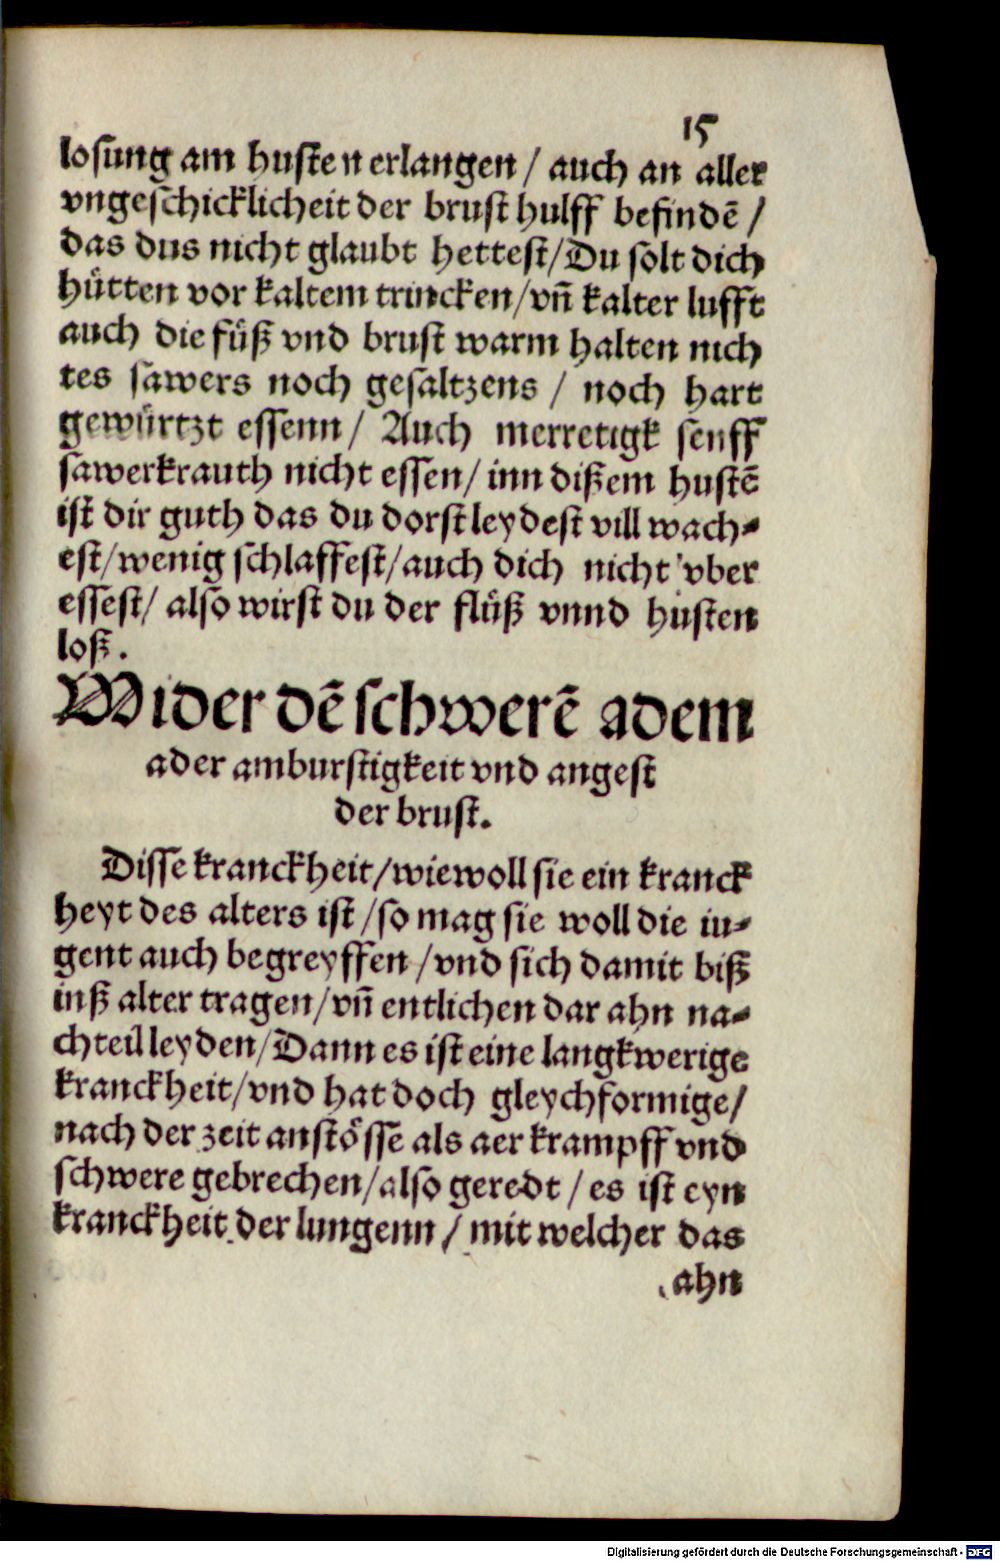 15
losung am husten erlangen / auch an aller
vngeschicklicheit der brust hulff befindē /
das dus nicht glaubt hettest/Du solt dich
hütten vor kaltem trincken/vñ kalter lufft
auch die füß vnd brust warm halten nich
tes sawers noch gesaltzens / noch hart
gewürtzt essenn/ Auch merretigk senff
sawerkrauth nicht essen/ inn dißem hustē
ist dir guth das du dorst leydest vill wach⸗
est/wenig schlaffest/auch dich nicht vber
essest/ also wirst du der flüß vnnd husten
loß.
Wider dē schwerē adem
ader amburstigkeit vnd angest
der brust.
Disse kranckheit/wiewoll sie ein kranck
heyt des alters ist /so mag sie woll die iu⸗
gent auch begreyffen /vnd sich damit biß
inß alter tragen/vñ entlichen dar ahn na⸗
chteil leyden/Dann es ist eine langkwerige
kranckheit/vnd hat doch gleychformige/
nach der zeit anstösse als aer krampff vnd
schwere gebrechen/also geredt / es ist eyn
kranckheit der lungenn / mit welcher das
ahn
Digitalisierung gefördert durch die Deutsche Forschungsgemeinschaft - DFG